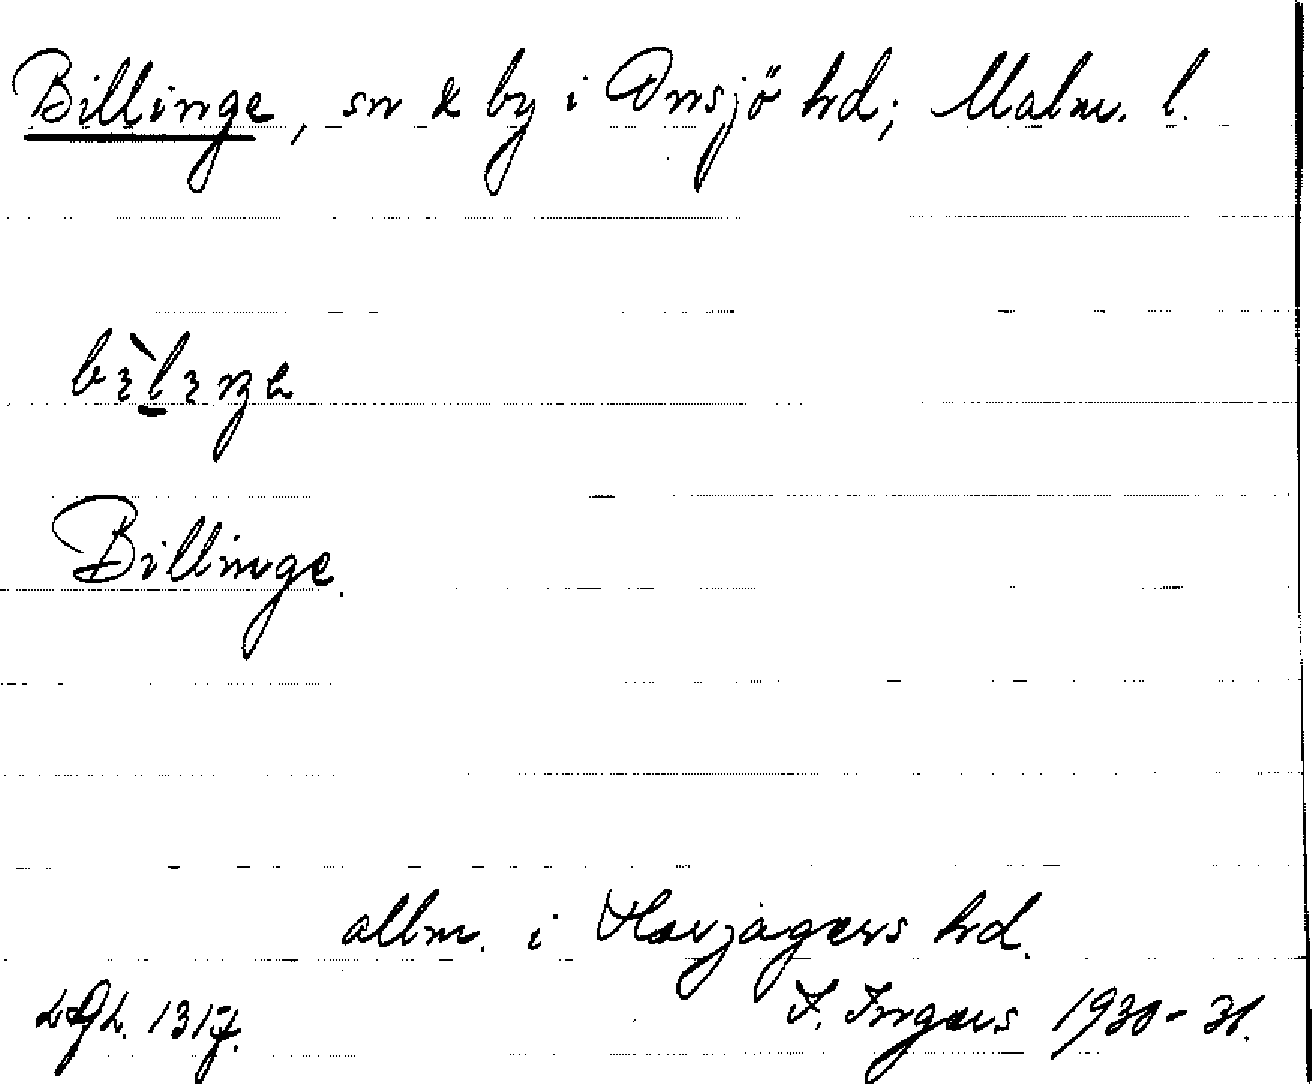 Billinge, sn & by i Onsjö hd; Malm. l.
Billinge.
allm. i Harjagers hd.
I. Ingers 1930-31.